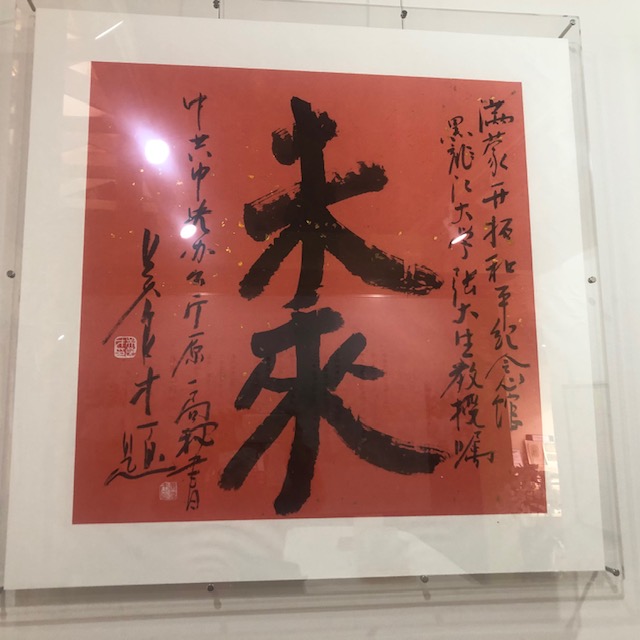 满蒙开拓和平纪念馆
黑龙江大学张大生教授嘱
未来
中共中央办公厅原
题